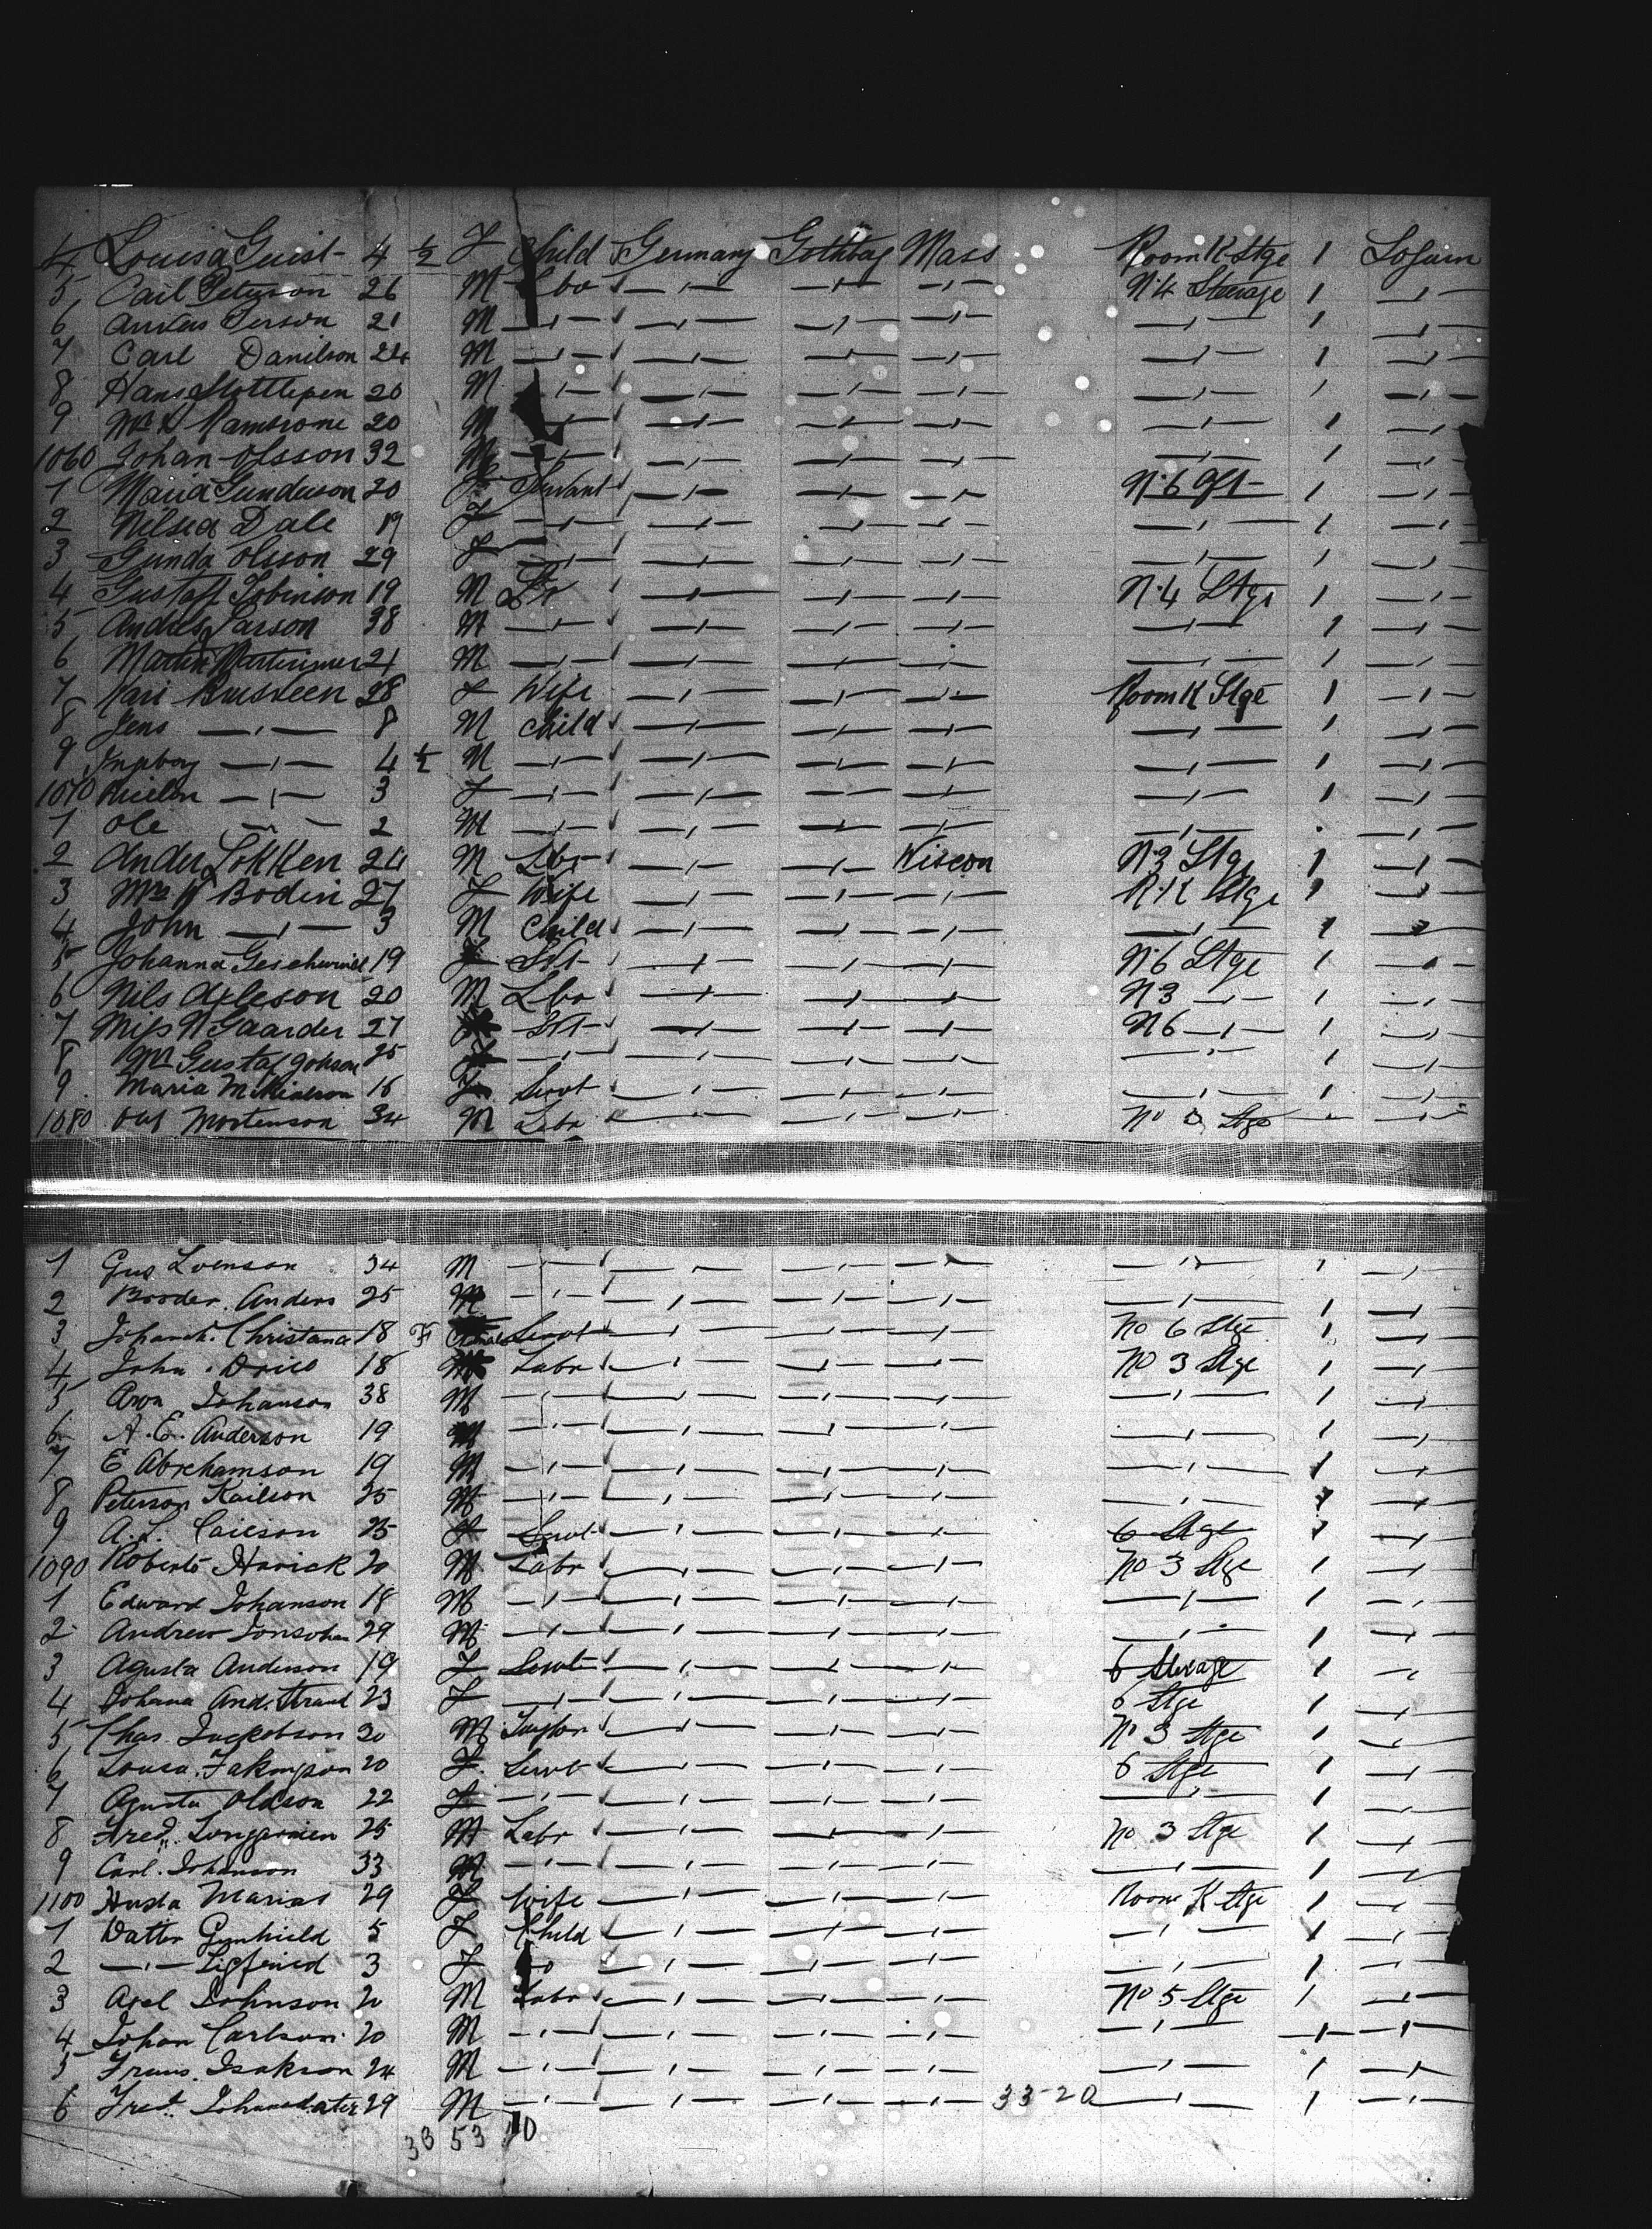 4 Louisa Guist 4 ½ F Child Germany Gothbag Mass Room K Stge 1 Sojurn
5 Carl Peterson 26 M Lbo —"— —"— —"— N.4 Steerage 1 —"—
6 Person 21 M —"— —"— —"— —"— —"— 1 —"—
7 Carl Danilson 24 M —"— —"— —"— —"— —"— 1 —"—
8 Hans 20 M —"— —"— —"— —"— —"— 1 —"—
9 20 M —"— —"— —"— —"— —"— 1 —"—
1060 Johan Olsson 32 M —"— —"— —"— —"— —"— 1 —"—
1 Maria Gunderson 20 F Servant —"— —"— —"— N.6 1 —"—
2 Nilsea Dale 19 F —"— —"— —"— —"— —"— 1 —"—
3 Gunda Olsson 29 F —"— —"— —"— —"— —"— 1 —"—
4 Gustaf Tobinson 19 M Lbr —"— —"— —"— N.4 Stge 1 —"—
5 Andres Larson 38 M —"— —"— —"— —"— —"— 1 —"—
6 Martin 21 M —"— —"— —"— —"— —"— 1 —"—
7 Kari Brusveen 28 F Wife —"— —"— —"— Room K Stge 1 —"—
8 Jens —"— 8 M Child —"— —"— —"— —"— 1 —"—
9 Ingborg —"— 4 ½ M —"— —"— —"— —"— —"— 1 —"—
1070 —"— 3 F —"— —"— —"— —"— —"— 1 —"—
1 Ole —"— 2 M —"— —"— —"— —"— —"— —"—
2 Ander Lokken 24 M Lbr —"— —"— Wiscon N.3 Stge 1 —"—
3 Mrs Bodin 27 F Wife —"— —"— —"— R.K Stge 1 —"—
4 John —"— 3 M Child —"— —"— —"— —"— 1 —"—
5 Johanna 19 F Svt —"— —"— —"— N.6 Stge 1 —"—
6 Nils Axleson 20 M Lbr —"— —"— —"— N3 —"— 1 —"—
7 Miss N Gaarder 27 F Svt —"— —"— —"— N6 —"— 1 —"—
8 Gustaf Johson 25 F —"— —"— —"— —"— —"— 1 —"—
9 Maria 16 F Servt —"— —"— —"— —"— 1 —"—
1080 Olaf Mortenson 34 M Labr —"— —"— —"— No 3 Stge —"— —"—
1 Gus Svenson 34 M —"— —"— —"— —"— —"— 1 —"—
2 Broder. Anders 25 M —"— —"— —"— —"— —"— 1 —"—
3 Christana 18 F Servt —"— —"— —"— No 6 Stge 1 —"—
4 John 18 M Labr —"— —"— —"— No 3 Stge 1 —"—
5 Aron Johanson 38 M —"— —"— —"— —"— —"— 1 —"—
6 A. E. Anderson 19 M —"— —"— —"— —"— —"— 1 —"—
7 E Abrehamson 19 M —"— —"— —"— —"— —"— 1 —"—
8 Peterson Kailson 25 M —"— —"— —"— —"— —"— 1 —"—
9 A. L. Carlson 25 F Servt —"— —"— —"— 6 Stge 1 —"—
1090 Roberto Harick 20 M Labr —"— —"— —"— No 3 Stge 1 —"—
1 Edward Johanson 18 M —"— —"— —"— —"— —"— 1 —"—
2 Andrew Jonsohn 29 M —"— —"— —"— —"— —"— 1 —"—
3 Agusta Anderson 19 F Servt —"— —"— —"— 6 Sterage 1 —"—
4 Johana And. Strand 23 F —"— —"— —"— —"— 6 Stge 1 —"—
5 Chas. Jackobson 30 M Taylor —"— —"— —"— No 3 Stge 1 —"—
6 Lousa. 20 F. Servt —"— —"— —"— 6 Stge 1 —"—
7 Agusta Oldson 22 F —"— —"— —"— —"— —"— 1 —"—
8 Fred. 25 M Labr —"— —"— —"— No 3 Stge 1 —"—
9 Carl. Johanson 33 M —"— —"— —"— —"— —"— 1 —"—
1100 Husta Marias 29 F Wife —"— —"— —"— Room K Stge 1 —"—
1 Datter Gunhield 5 F Child —"— —"— —"— —"— 1 —"—
2 —"— Sigfried 3 F Do —"— —"— —"— —"— 1 —"—
3 Axel Johnson 20 M Labr —"— —"— —"— No 5 Stge 1 —"—
4 Johan Carlson 20 M —"— —"— —"— —"— —"— 1 —"—
5 Frans. Isakson 24 M —"— —"— —"— —"— —"— 1 —"—
6 Fred. Johansdater 29 M —"— —"— —"— —"— 33-20 —"— 1 —"—
33 53 10